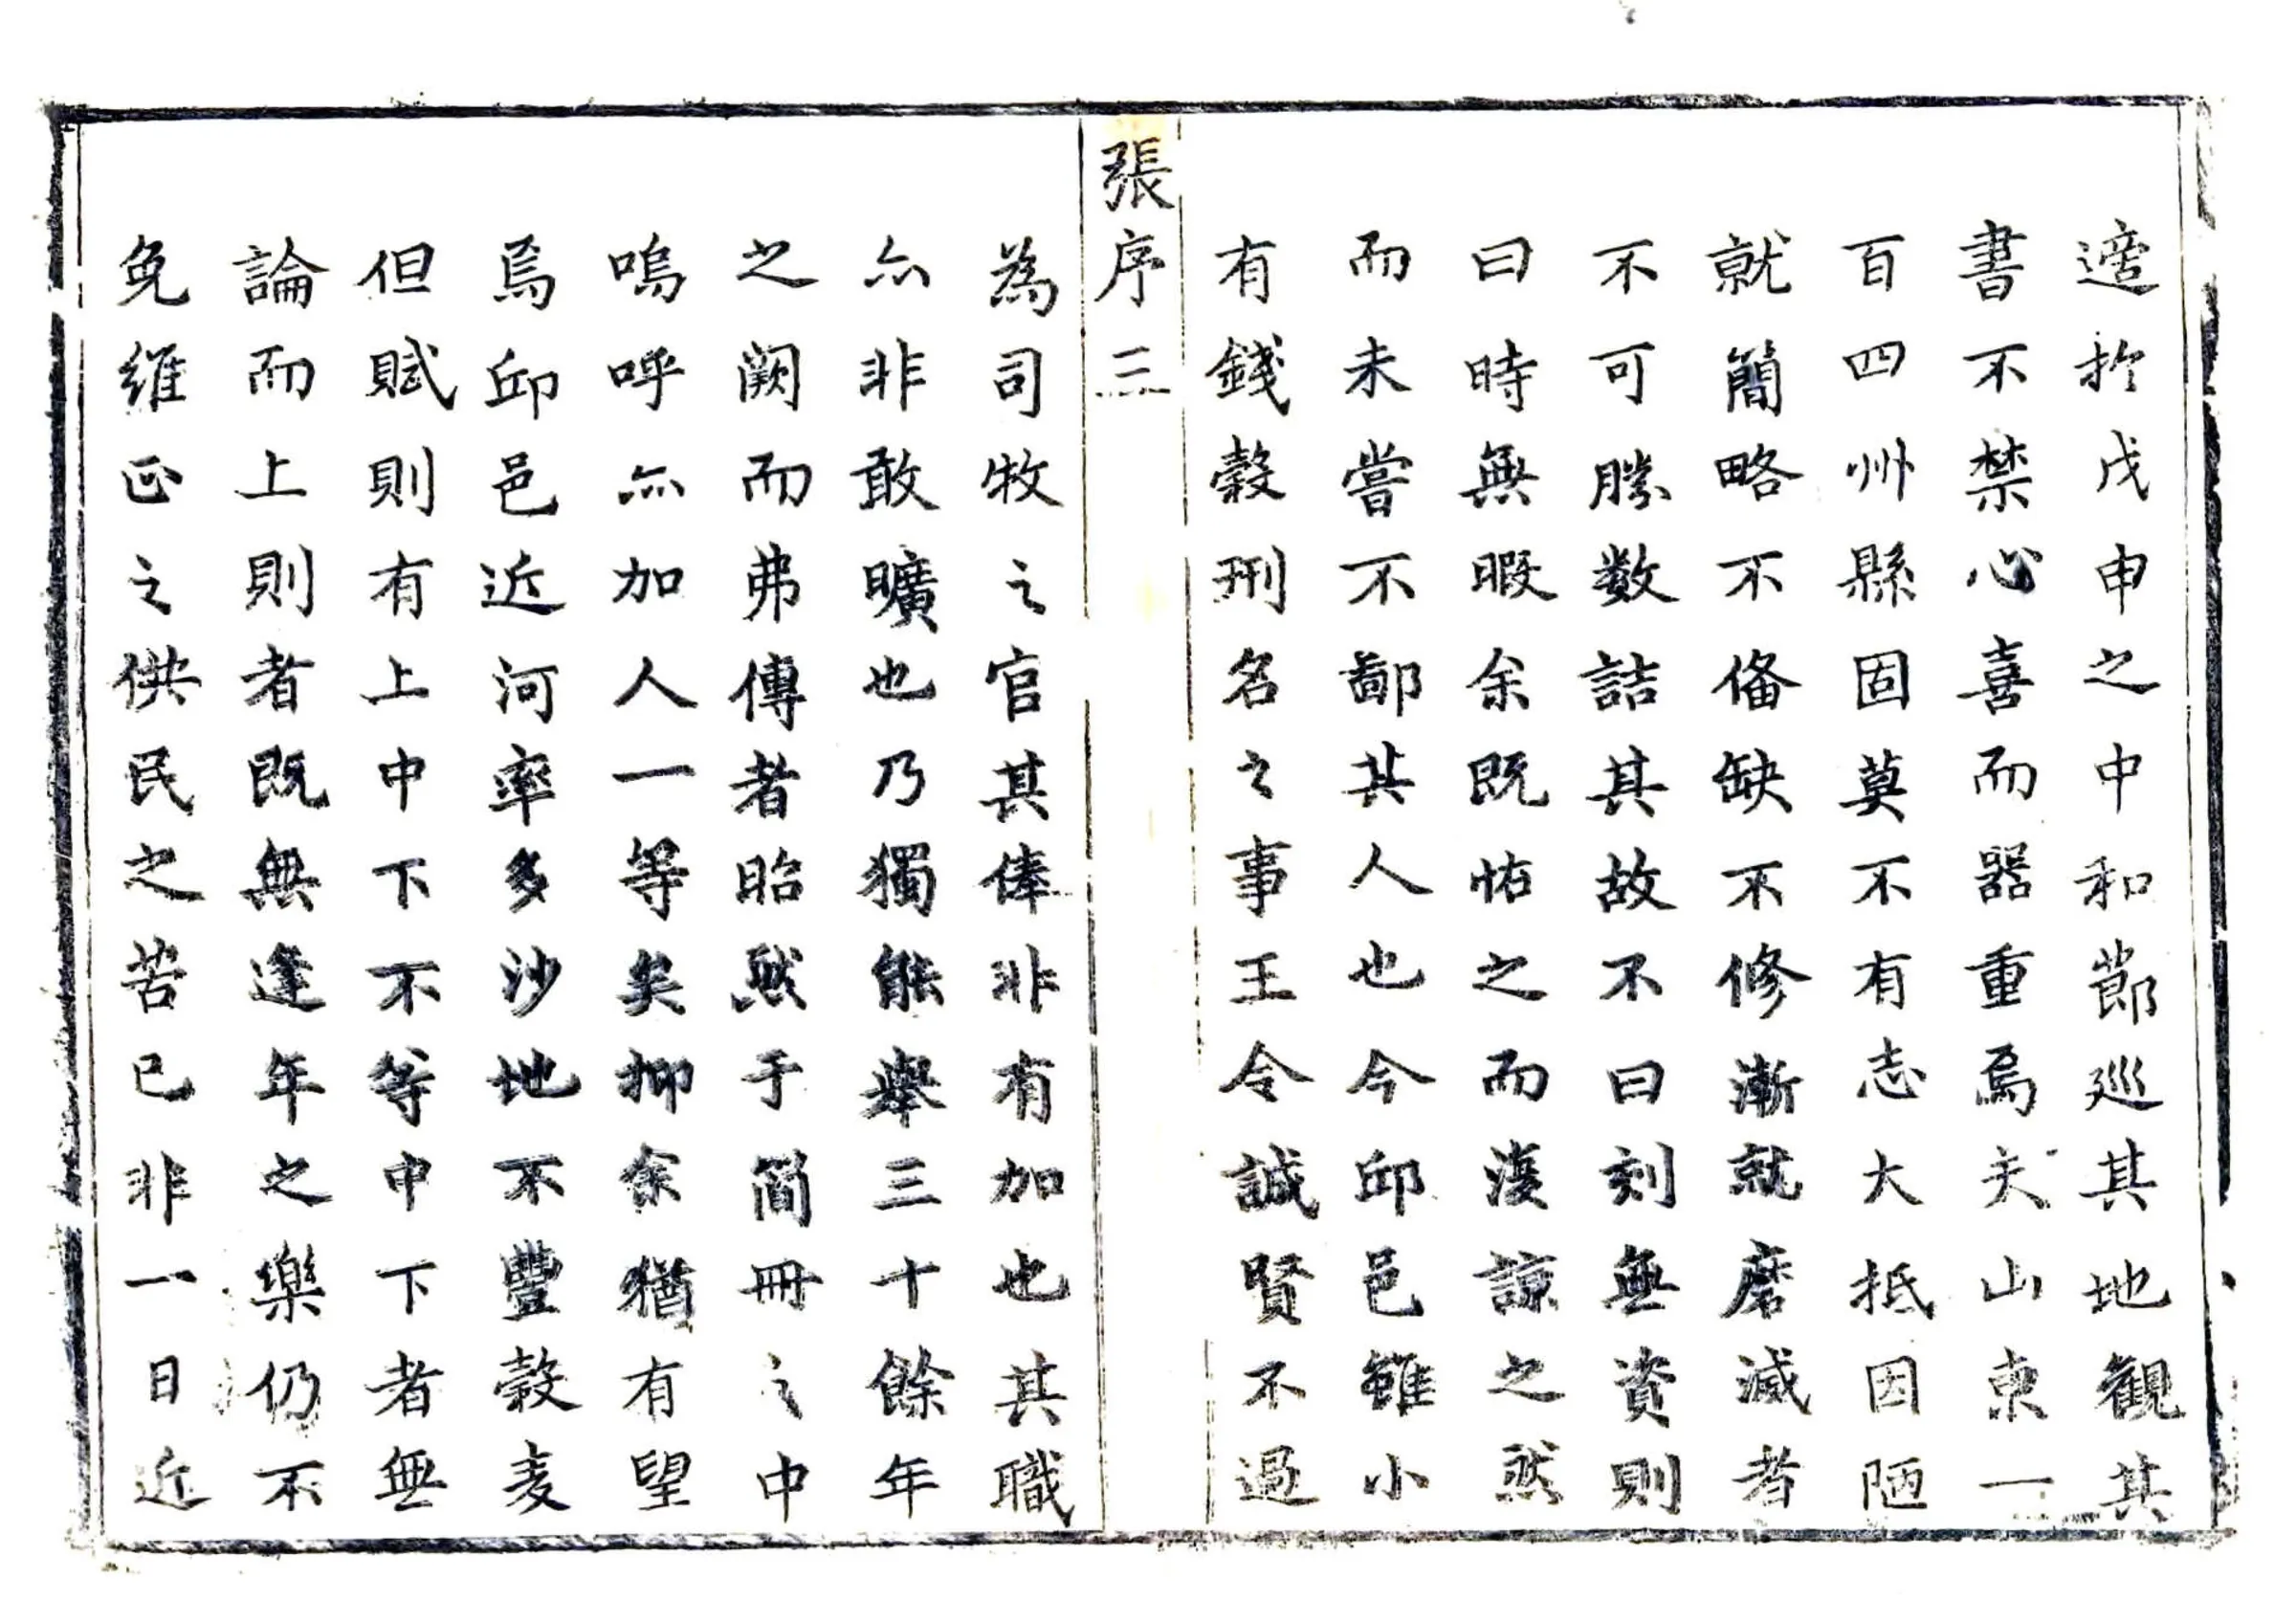 適於戊申之中和節巡其地觀其
書不禁心喜而器重焉夫山東一
百四州縣固莫不有志大抵因陋
就簡略不俻缺不修漸就磨滅者
不可勝数詰其故不曰刻無資則
曰時無暇余既怙之而淒諒之然
而未嘗不鄙其人也今邱邑雖小
有錢穀刑名之事王令誠賢不過
張序三
為司牧之官其俸非有加也其職
亦非敢曠也乃獨能舉三十餘年
之阙而弗傳者昭然于簡冊之中
嗚呼亦加人一等矣抑余猶有望
焉邱邑近河率多沙地不豐穀麦
但賦則有上中下不等中下者無
論而上則者既無逢年之樂仍不
免維正之供民之苦已非一日近